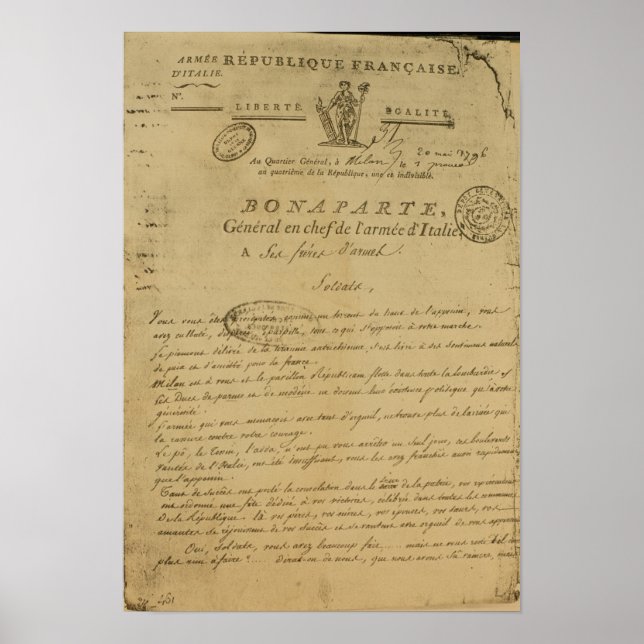 ARMÉE RÉPUBLIQUE FRANÇAISE.
D'ITALIE.
N°.
LIBERTÉ. EGALITÉ.
20 mai 1796
Au Quartier Général, à Milan le 1 prairial
au quatrième de la République, une et indivisible.
BONAPARTE,
Général en chef de l'armée d'Italie
A Ses frères d'armes.
Soldats,
Vous vous êtes précipités, comme un torrent du haut de l'apennin, vous
avez culbuté, dispersé, éparpillé, tout ce qui s'opposait à votre marche.
Le piemont délivré de la tirannie autrichienne, s'est livré à ses sentimens naturels
de paix et d'amitié pour la france.
Milan est à vous et le pavillon Républicain flotte dans toute la lombardie
Les Ducs de parme et de modène ne doivent leur existence politique qu'à votre
générosité.
L'armée qui vous menaçoit avec tant d'orgueil, ne trouve plus de barrière qui
la rassure contre votre courage.
Le pô, le Tesin, l'adda, n'ont pu vous arrêter un seul jour, ces boulevards
vantés de l'Italie, ont été insuffisans, vous les avez franchis aussi rapidement
que l'apennin.
Tant de succès ont porté la consolation dans le sein de la patrie, vos représentans
ont ordonné une fête dédiée à vos victoires, célébrée dans toutes les communes
De la République. Là vos pères, vos mères, vos épouses, vos sœurs, vos
amantes se réjouissent de vos succès et se vantent avec orgueil de vous appartenir
Oui, Soldats, vous avez beaucoup fait..... mais ne vous reste-t-il
plus rien à faire?..... Dira-t-on de nous, que nous avons su vaincre, mais